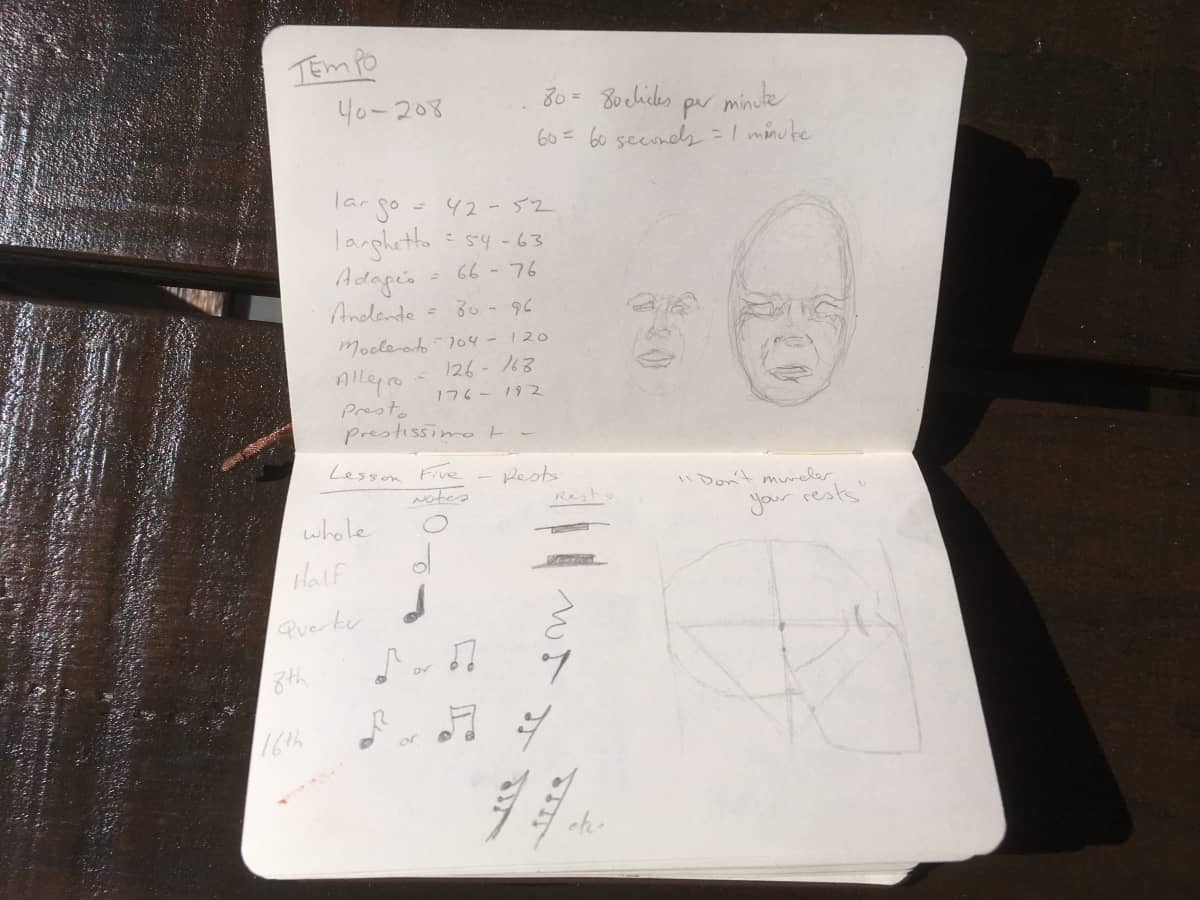 TEMPO
40-208
80 = 80 clicks per minute
60 = 60 seconds = 1 minute
largo = 42 - 52
larghetto = 54 - 63
Adagio = 66 - 76
Andante = 80 - 96
Moderato - 104 - 120
Allegro = 126 - 168
presto 176 - 192
prestissimo + -
Lesson Five - Rests
"Don't murder
your rests"
Notes Rests
whole
Half
Quarter
8th or
16th or
etc.